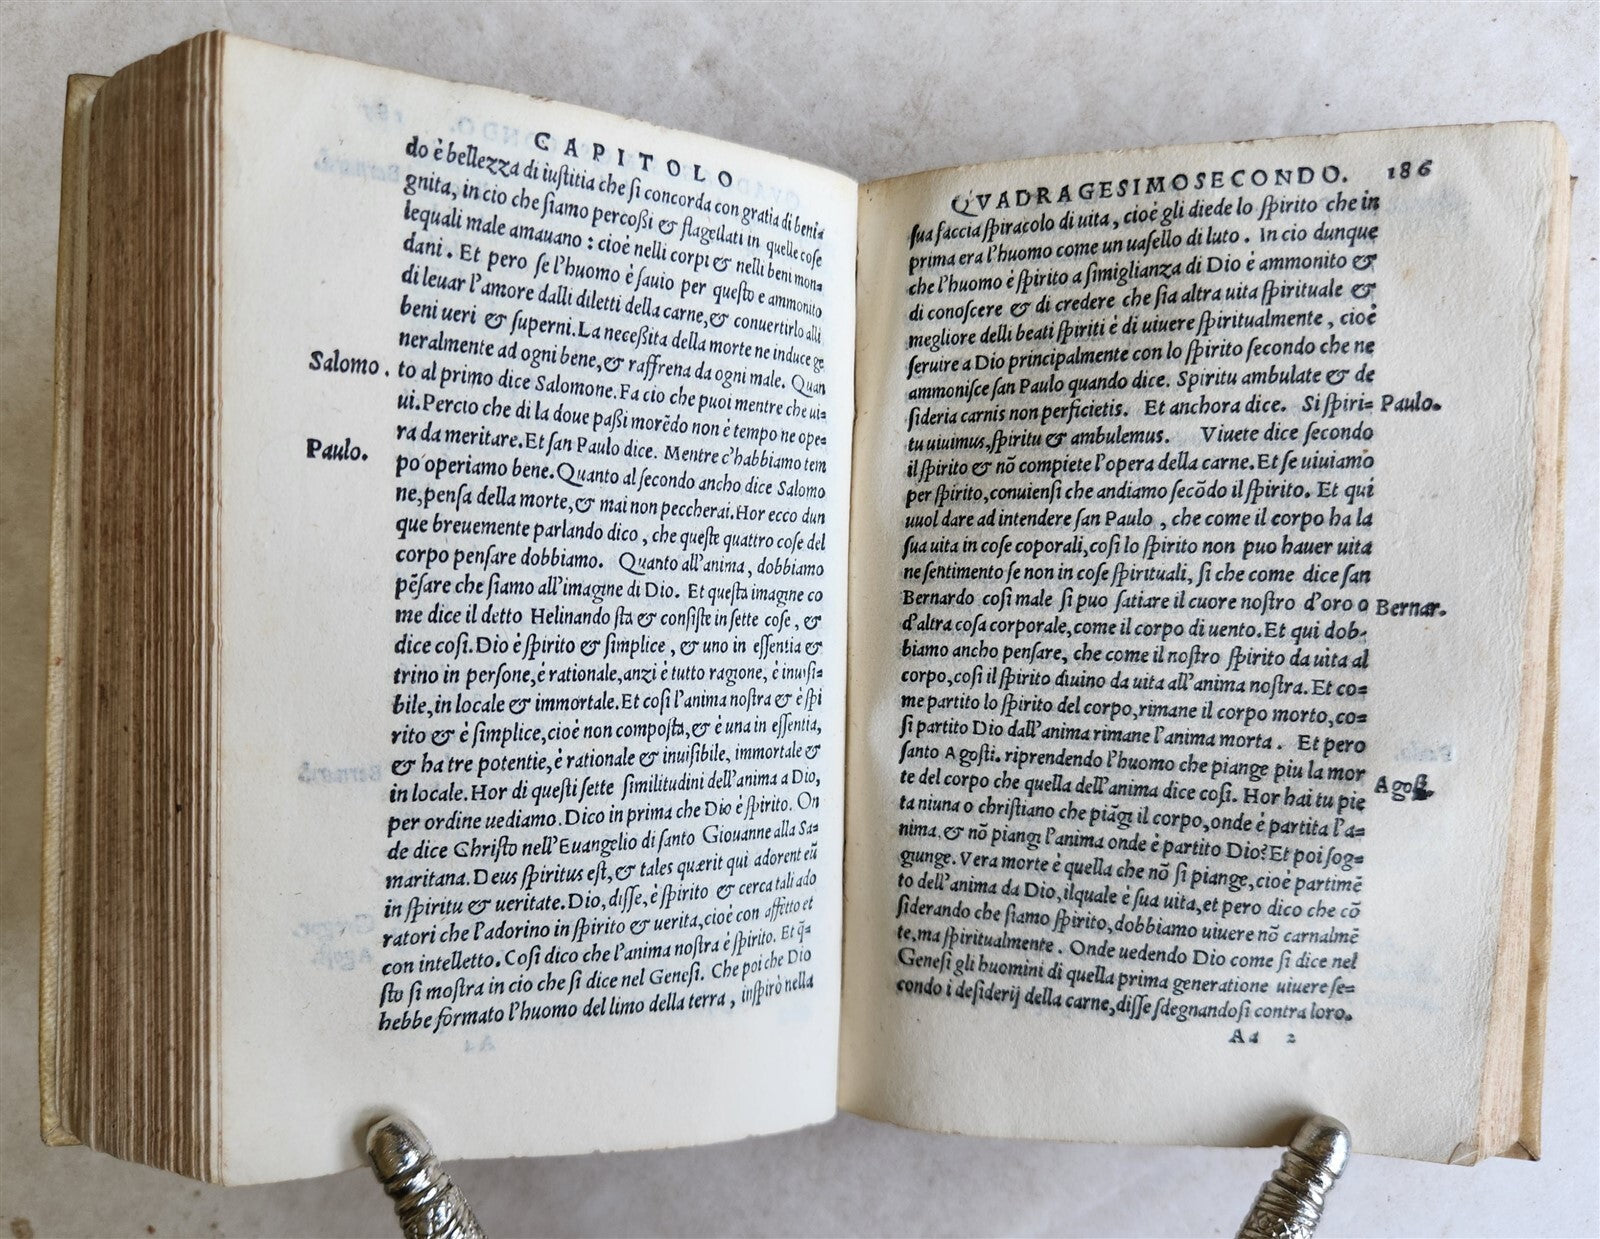 CAPITOLO
do è bellezza di iustitia che si concorda con gratia di beni-
gnita, in cio che siamo percoßi & flagellati in quelle cose
lequali male amauano : cioè nelli corpi & nelli beni mon-
dani. Et pero se l'huomo è sauio per questo e ammonito
di leuar l'amore dalli diletti della carne, & conuertirlo alli
beni ueri & superni. La neceßita della morte ne induce ge
neralmente ad ogni bene, & raffrena da ogni male. Quan
Salomo. to al primo dice Salomone. Fa cio che puoi mentre che ui-
ui. Percio che di la doue paßi morēdo non è tempo ne ope-
ra da meritare. Et san Paulo dice. Mentre c'habbiamo tem
Paulo. po operiamo bene. Quanto al secondo ancho dice Salomo
ne, pensa della morte, & mai non peccherai. Hor ecco dun
que breuemente parlando dico, che queste quattro cose del
corpo pensare dobbiamo. Quanto all'anima, dobbiamo
pēsare che siamo all'imagine di Dio. Et questa imagine co
me dice il detto Helinando sta & consiste in sette cose, &
dice cosi. Dio è spirito & simplice, & uno in essentia &
trino in persone, é rationale, anzi è tutto ragione, è inuisi-
bile, in locale & immortale. Et cosi l'anima nostra & è spi
rito & è simplice, cioè non composta, & è una in essentia,
& ha tre potentie, è rationale & inuisibile, immortale &
in locale. Hor di questi sette similitudini dell'anima a Dio,
per ordine uediamo. Dico in prima che Dio è spirito. On
de dice Christo nell'Euangelio di santo Giouanne alla Sa-
maritana. Deus spiritus est, & tales quærit qui adorent eū
in spiritu & ueritate. Dio, disse, è spirito & cerca tali ado
ratori che l'adorino in spirito & uerita, cioè con affetto et
con intelletto. Cosi dico che l'anima nostra è spirito. Et q̄-
sto si mostra in cio che si dice nel Genesi. Che poi che Dio
hebbe formato l'huomo del limo della terra, inspirò nella
QVADRAGESIMOSECONDO. 186
sua faccia spiracolo di uita, cioè gli diede lo spirito che in
prima era l'huomo come un uasello di luto. In cio dunque
che l'huomo è spirito a simiglianza di Dio è ammonito &
di conoscere & di credere che sia altra uita spirituale &
megliore delli beati spiriti è di uiuere spiritualmente, cioè
seruire a Dio principalmente con lo spirito secondo che ne
ammonisce san Paulo quando dice. Spiritu ambulate & de
sideria carnis non perficietis. Et anchora dice. Si spiri- Paulo.
tu uiuimus, spiritu & ambulemus. Viuete dice secondo
il spirito & nō compiete l'opera della carne. Et se uiuiamo
per spirito, conuiensi che andiamo secōdo il spirito. Et qui
uuol dare ad intendere san Paulo, che come il corpo ha la
sua uita in cose coporali, cosi lo spirito non puo hauer uita
ne sentimento se non in cose spirituali, si che come dice san
Bernardo cosi male si puo satiare il cuore nostro d'oro o Bernar.
d'altra cosa corporale, come il corpo di uento. Et qui dob-
biamo ancho pensare, che come il nostro spirito da uita al
corpo, cosi il spirito diuino da uita all'anima nostra. Et co-
me partito lo spirito del corpo, rimane il corpo morto, co-
si partito Dio dall'anima rimane l'anima morta. Et pero
santo Agosti. riprendendo l'huomo che piange piu la mor
te del corpo che quella dell'anima dice cosi. Hor hai tu pie Agost.
ta niuna o christiano che piāgi il corpo, onde è partita l'a-
nima, & nō piangi l'anima onde è partito Dio? Et poi sog-
giunge. Vera morte è quella che nō si piange, cioè partimē
to dell'anima da Dio, ilquale è sua uita, et pero dico che cō
siderando che siamo spirito, dobbiamo uiuere nō carnalmē
te, ma spiritualmente. Onde uedendo Dio come si dice nel
Genesi gli huomini di quella prima generatione uiuere se-
condo i desiderij della carne, disse sdegnandosi contra loro.